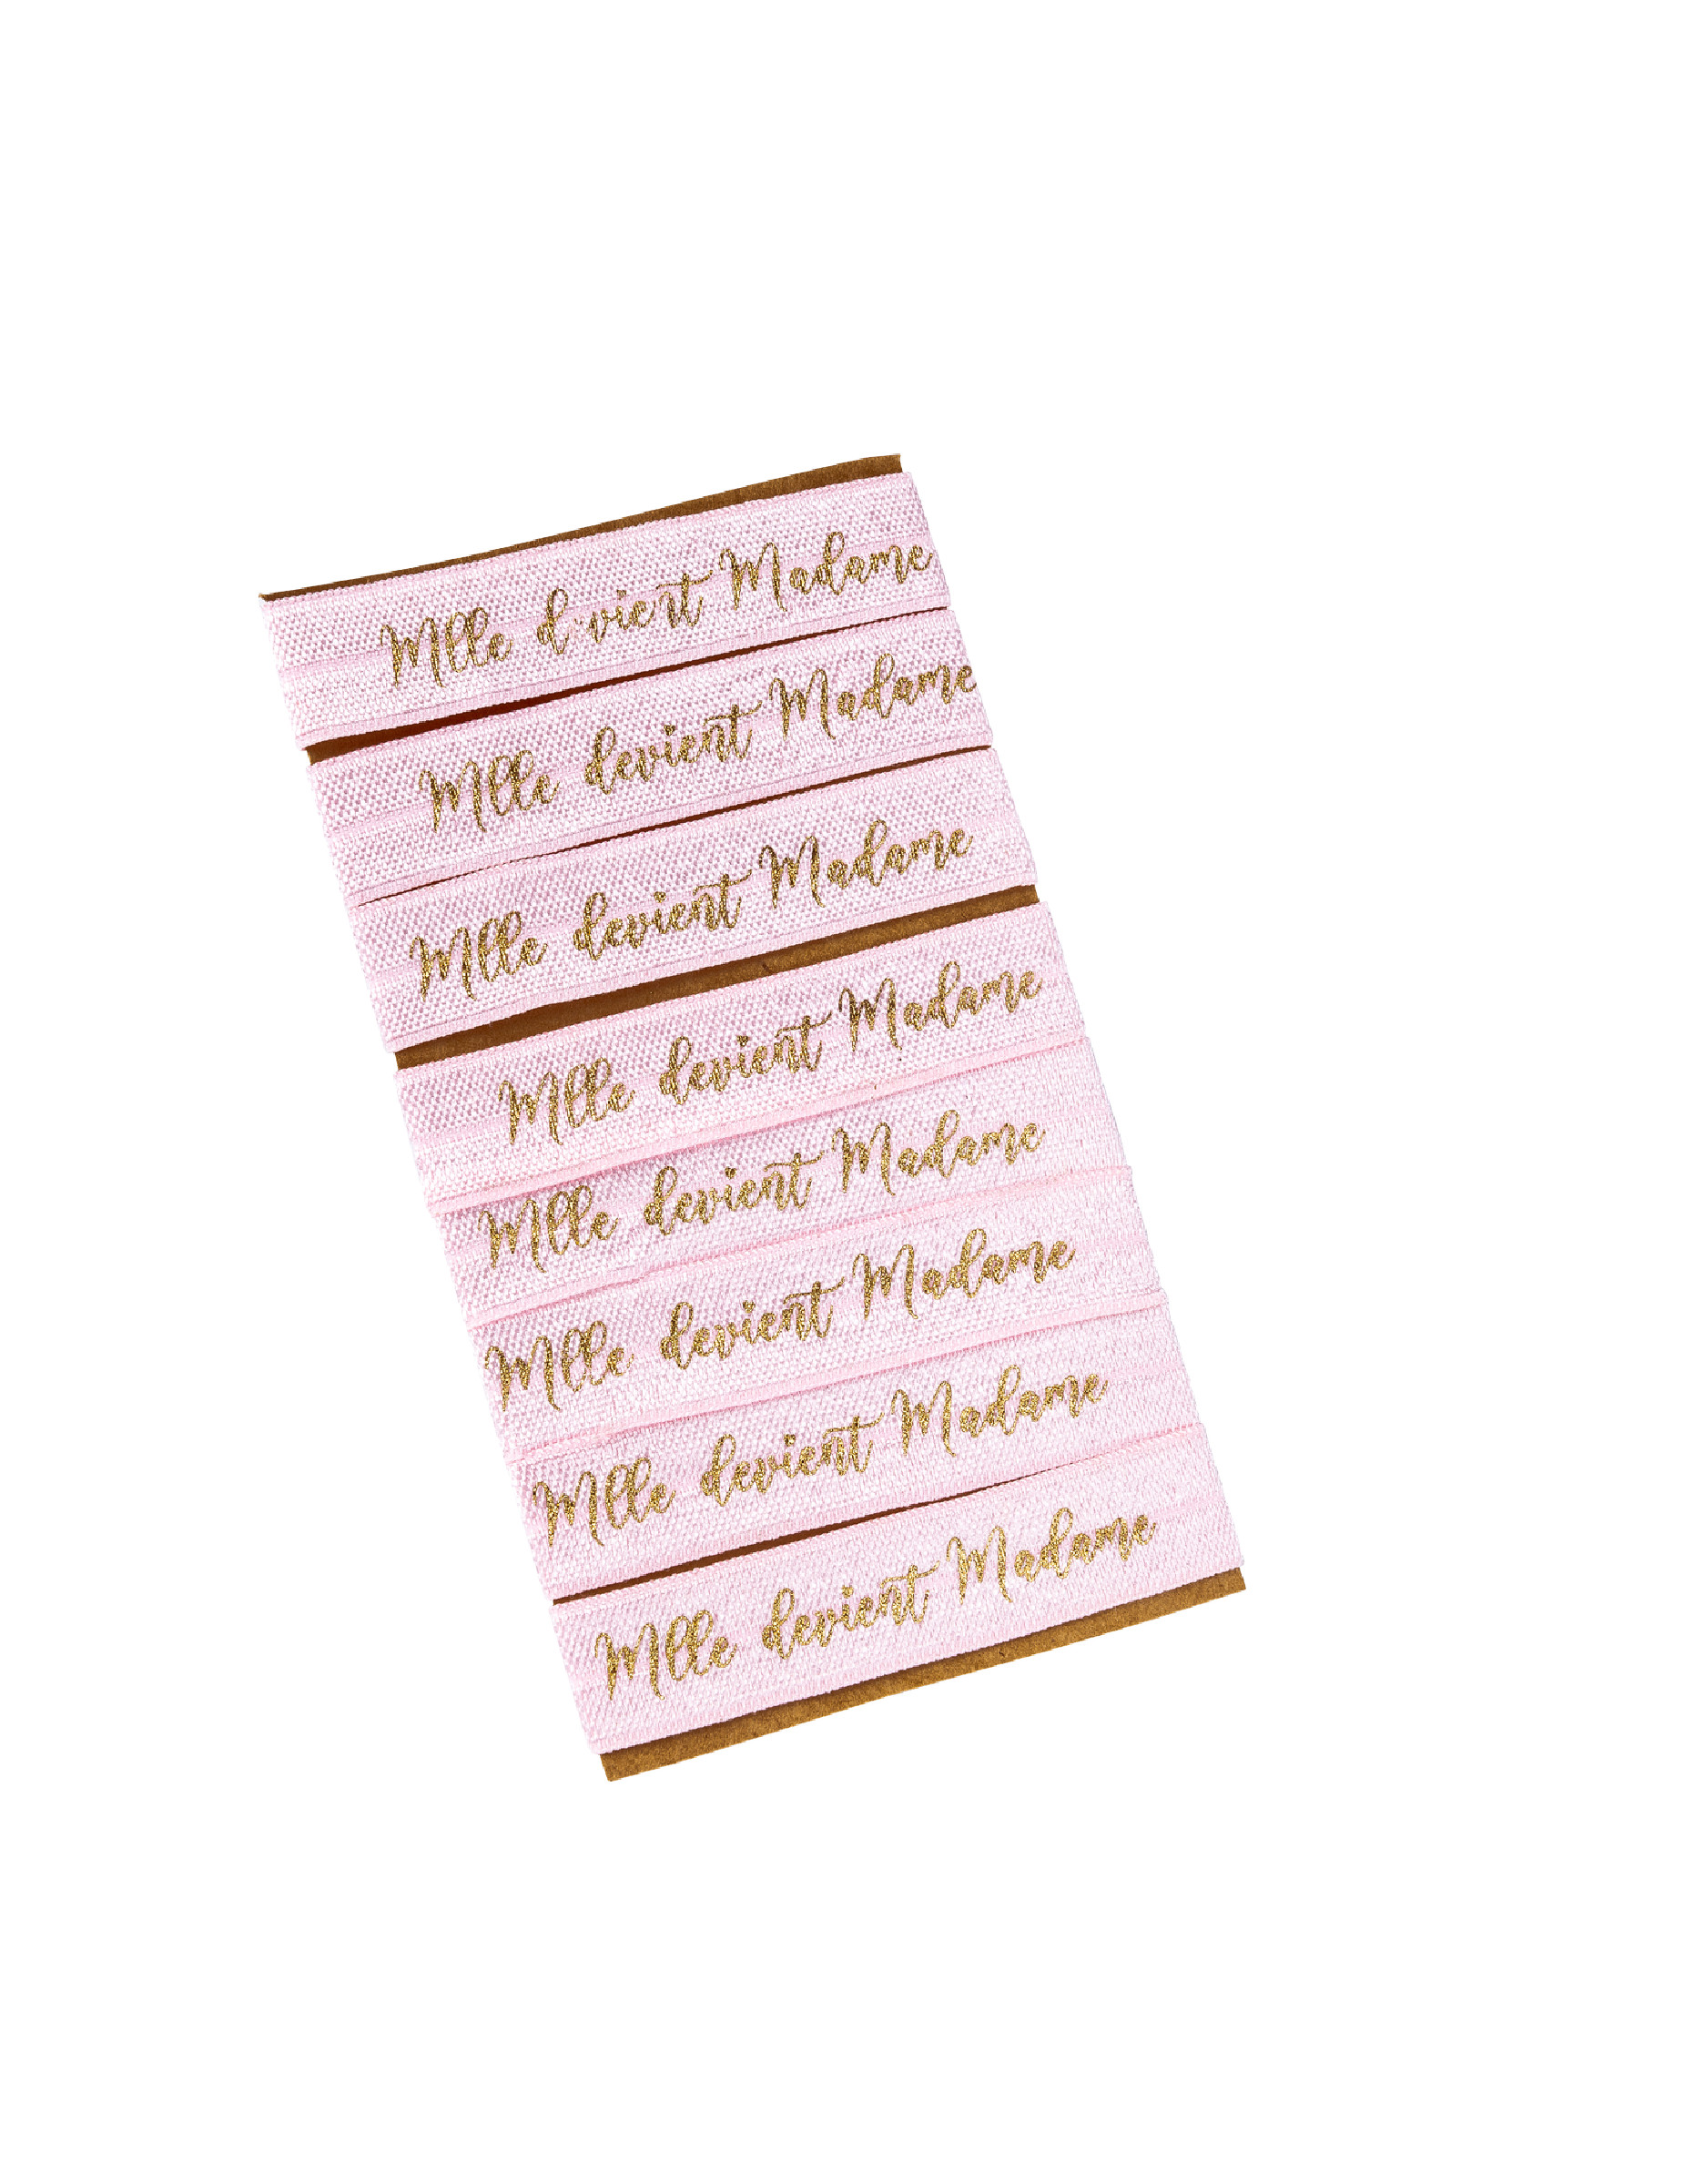 Mlle devient Madame
Mlle devient Madame
Mlle devient Madame
Mlle devient Madame
Mlle devient Madame
Mlle devient Madame
Mlle devient Madame
Mlle devient Madame